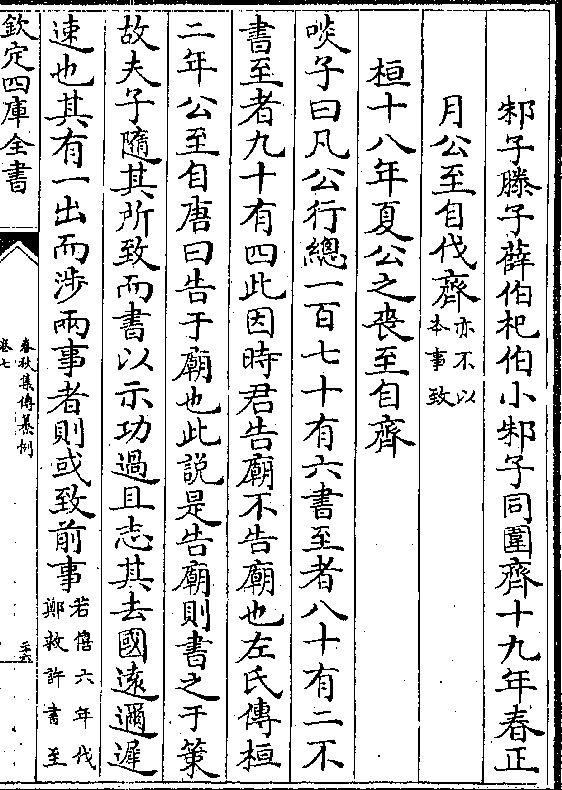 邾子滕子薛伯杞伯小邾子同圍齊十九年春正
月公至自伐齊亦不以本事致
桓十八年夏公之喪至自齊
啖子曰凡公行總一百七十有六書至者八十有二不
書至者九十有四此因時君告廟不告廟也左氏傳桓
二年公至自唐曰告于廟也此說是告廟則書之于策
故夫子隨其所致而書以示功過且志其去國逺邇遲
速也其有一出而涉兩事者則或致前事若僖六年伐鄭救許書至
欽定四庫全書
春秋集傳纂例
卷七